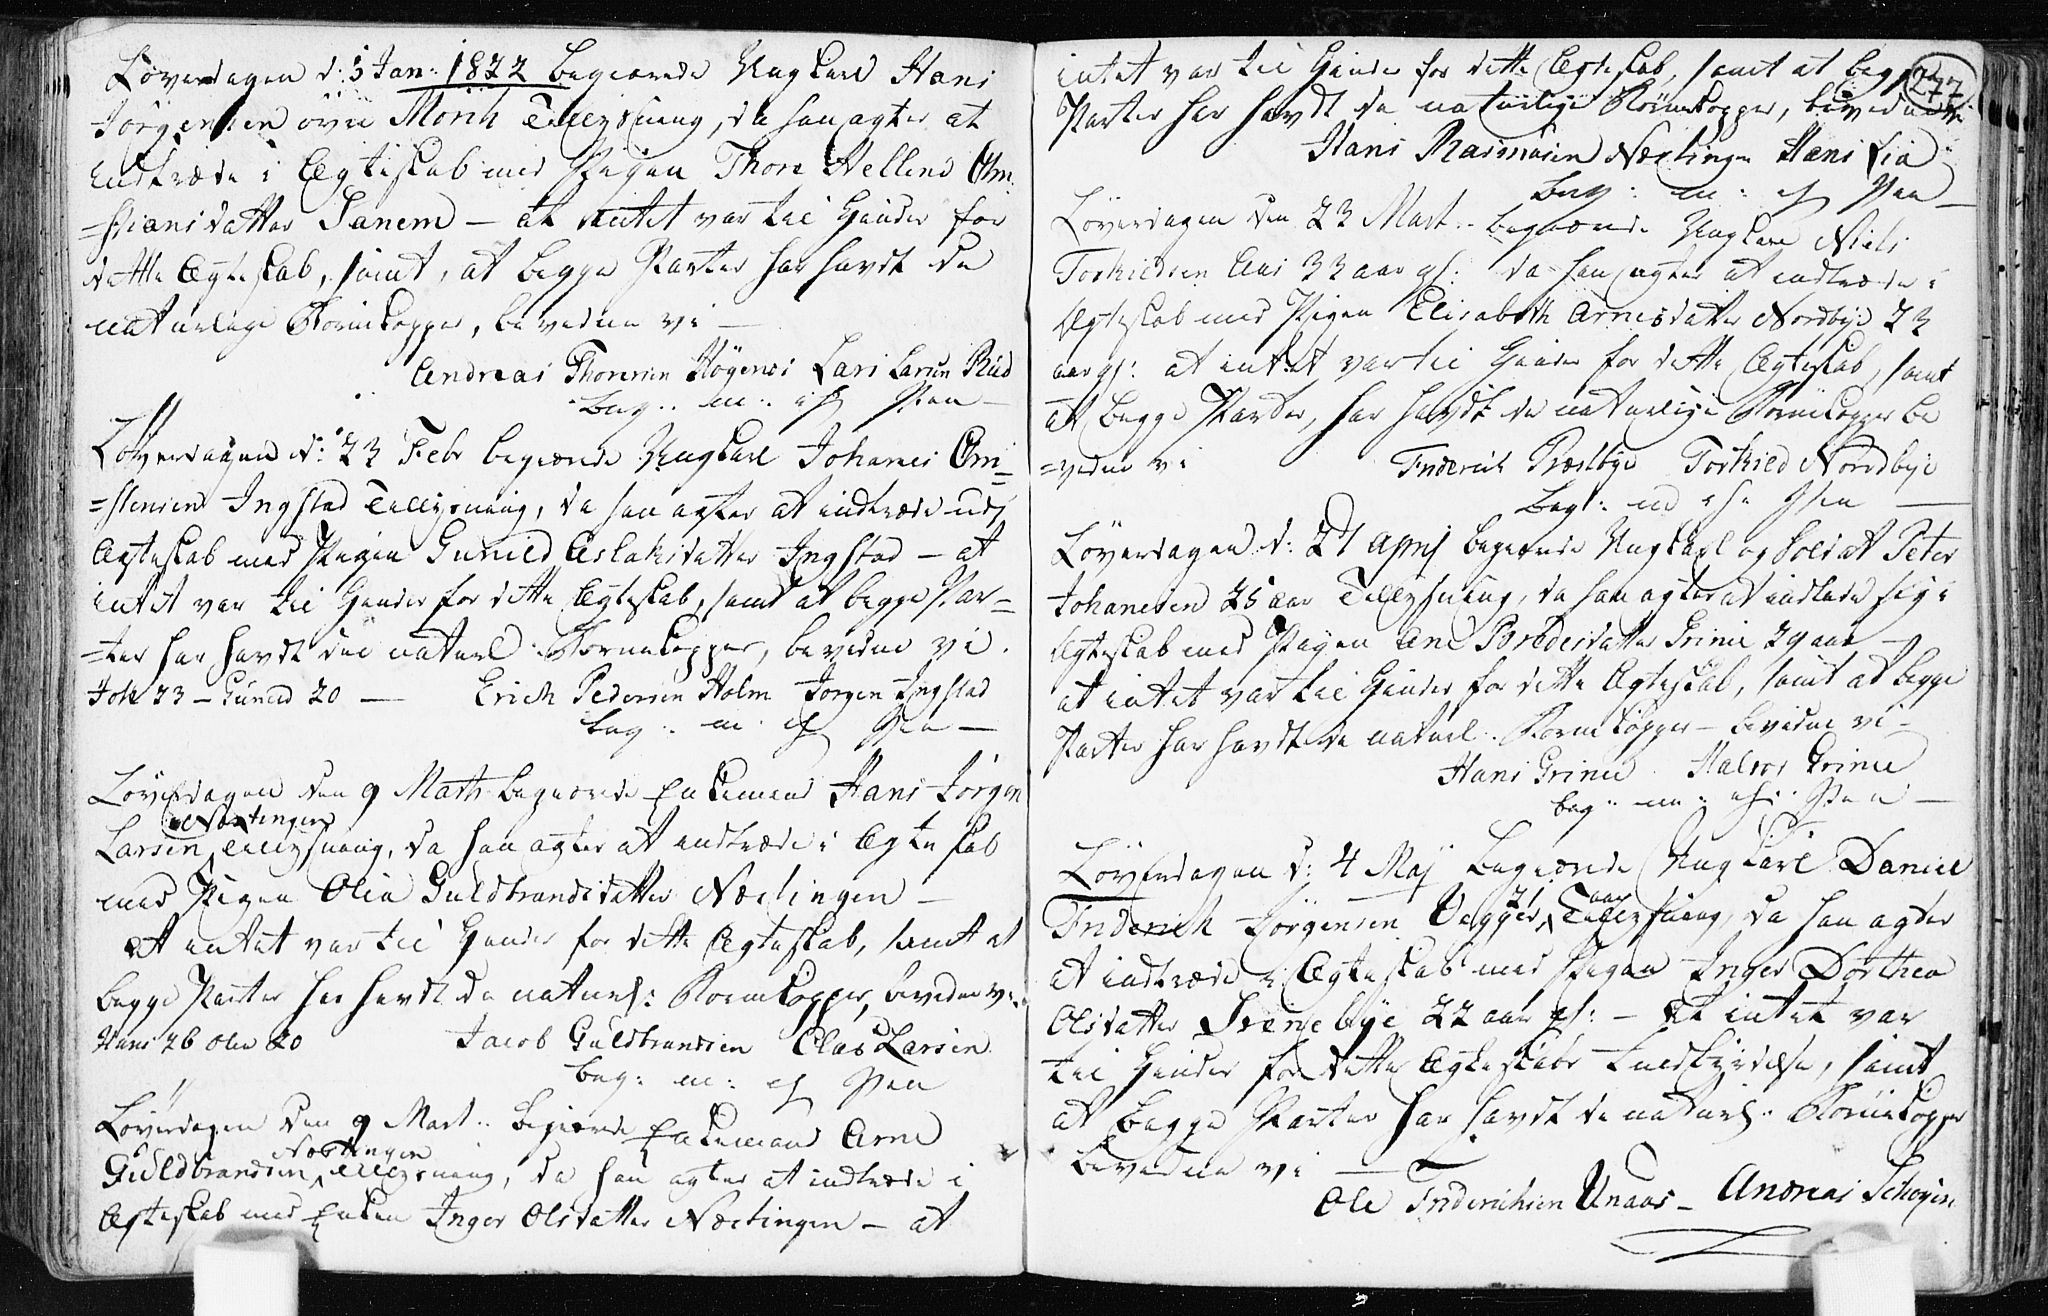 Løverdagen d: 5 Jan: 1822 begiærede Ungkarl Hans
Jörgensen övre Mörch Tillysning, da han agter at
indtræde i Ægteskab med Pigen Thore Hellene Chri
=stiansdatter Sanem – at intet var til Hinder for
dette Ægteskab, samt, at begge Parter har havdt de
naturlige Kornkopper, bevidne vi –
Andreas Thoresen Högenes Lars Larsen Rud
Beg: m: i P Pen –
Løverdagen d: 23 Febr begiærede Ungkarl Johanes Chri=
=stensen Ingstad Tillysning, da han agter at indtræde udj
Ægteskab med Pigen Gunild Aslaksdatter Ingstad – at
intet var til Hinder for dette Ægteskab, samt at begge Par=
=ter har havdt die naturl: Kornekopper, bevidne vi.
Joh 23 – Gunild 20 – Erich Pedersen Holm Jörgen Ingstad
beg: m: P Pen –
Løverdagen den 9 Marts begiærede Enkemand Hans Jörgen
Næstingen
Larsen Tillysning, da han agter at indtræde i Ægteskab
med Pigen Olia Guldbrandsdatter Næstingen –
At intet var til Hinder for dette Ægteskab, samt at
begge Parter har havdt de naturl: Kornkopper, bevidne vi
Hans 26 Olia 20 Jacob Guldbrandsen Elias Larsen
beg: m: P Pen
Løverdagen den 9 Mart: begiærede Enkemand Arne
Næstingen
Guldbrandsen Tillysning, da han agter at indtræde i
Ægteskab med Enken Inger Olsdatter Næstingen – at
277
intet var til Hinder for dette Ægteskab, samt at begge
Parter har havdt de naturlige Kornkopper, bevidne vi
Hans Rasmusen Næstingen Hans Lia
Beg: m: P Pen –
Løverdagen den 23 Mart: begiærede Ungkarl Niels
Torkildsen Aas 33 aar gl: da han agter at indtræde i
Ægteskab med Pigen Elisabeth Arnesdatter Nordbye 23
aar gl: at intet var til Hinder for dette Ægteskab, samt
at begge Parter, har havdt de naturlige Kornkopper be
=vidne vi Friderich Præstbye Torkild Nordbye
Begl: m P Pen –
Løverdagen d: 27 April begiærede Ungkarl og Soldat Peter
Johanesen 25 aar Tillysning, da han agter at indlade sig i
Ægteskab med Pigen Ane Bredesdatter Grinie 29 aar –
at intet var til Hinder for dette Ægteskab, samt at begge
Parter har havdt de naturl: Kornkopper – bevidne vi –
Hans Grinie Halvor Grinie
beg: m: P Pen –
Løverdagen d: 4 Maj begiærede Ungkarl Daniel
21 aar
Friderich Jörgensen Vegger Tillysning, da han agter
at indtræde i Ægteskab med Pigen Inger Dorthea
Olsdatter Svenebye 22 aar gl: – At intet var
til Hinder for dette Ægteskabs Fuldbyrdelse, samt
at begge Parter har havdt de naturl: Kornkopper
bevidne vi –
Ole Friderichsen Unaas – Andreas Schoyen